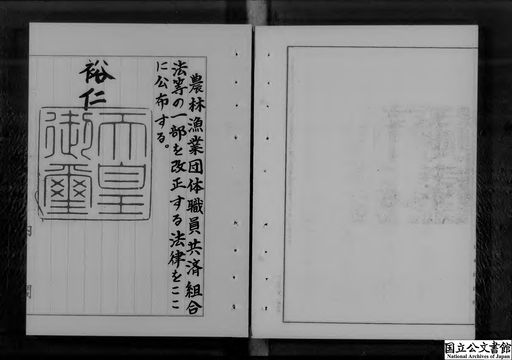 農林漁業団体職員共済組合
法等の一部を改正する法律をここ
に公布する。
裕仁
天皇
御璽
国立公文書館
National Archives of Japan